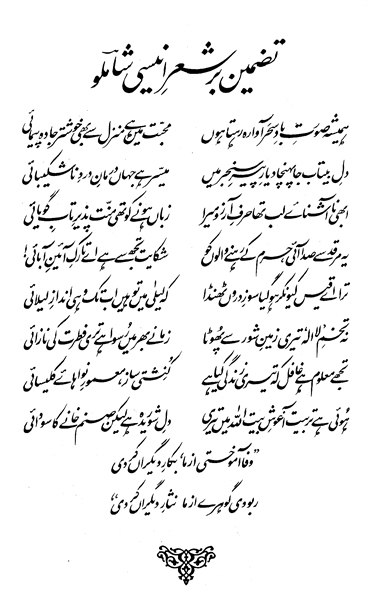 تضمین بر شعرِ انیسی شاملو
ہمیشہ صورتِ بادِ سحر آوارہ رہتا ہوں محبت میں ہے منزل سے بھی خوشتر جادہ پیمائی
دلِ بیتاب جا پہنچا دیارِ پیرِ سنجر میں میسر ہے جہاں درمانِ دردِ ناشکیبائی
ابھی ناآشنائے لب تھا حرفِ آرزو میرا زباں ہونے کو تھی منت پذیرِ تابِ گویائی
یہ مرقد سے صدا آئی حرم کے رہنے والوں کو شکایت تجھ سے ہے اے تارکِ آئینِ آبائی!
ترا اے قیس کیونکر ہو گیا سوزِ دروں ٹھنڈا کہ لیلیٰ میں تو ہیں اب تک وہی اندازِ لیلائی
نہ تخمِ لاالہ تیری زمینِ شور سے پھوٹا زمانے بھر میں رسوا ہے تری فطرت کی نازائی
تجھے معلوم ہے غافل کہ تیری زندگی کیا ہے کنشتی ساز، معمورِ نوا ہائے کلیسائی
ہوئی ہے تربیت آغوشِ بیت اللہ میں تیری دلِ شوریدہ ہے لیکن صنم خانے کا سودائی
"وفا آموختی از ما، بکارِ دیگراں کر دی
ربودی گوہرے از ما نثارِ دیگراں کر دی"